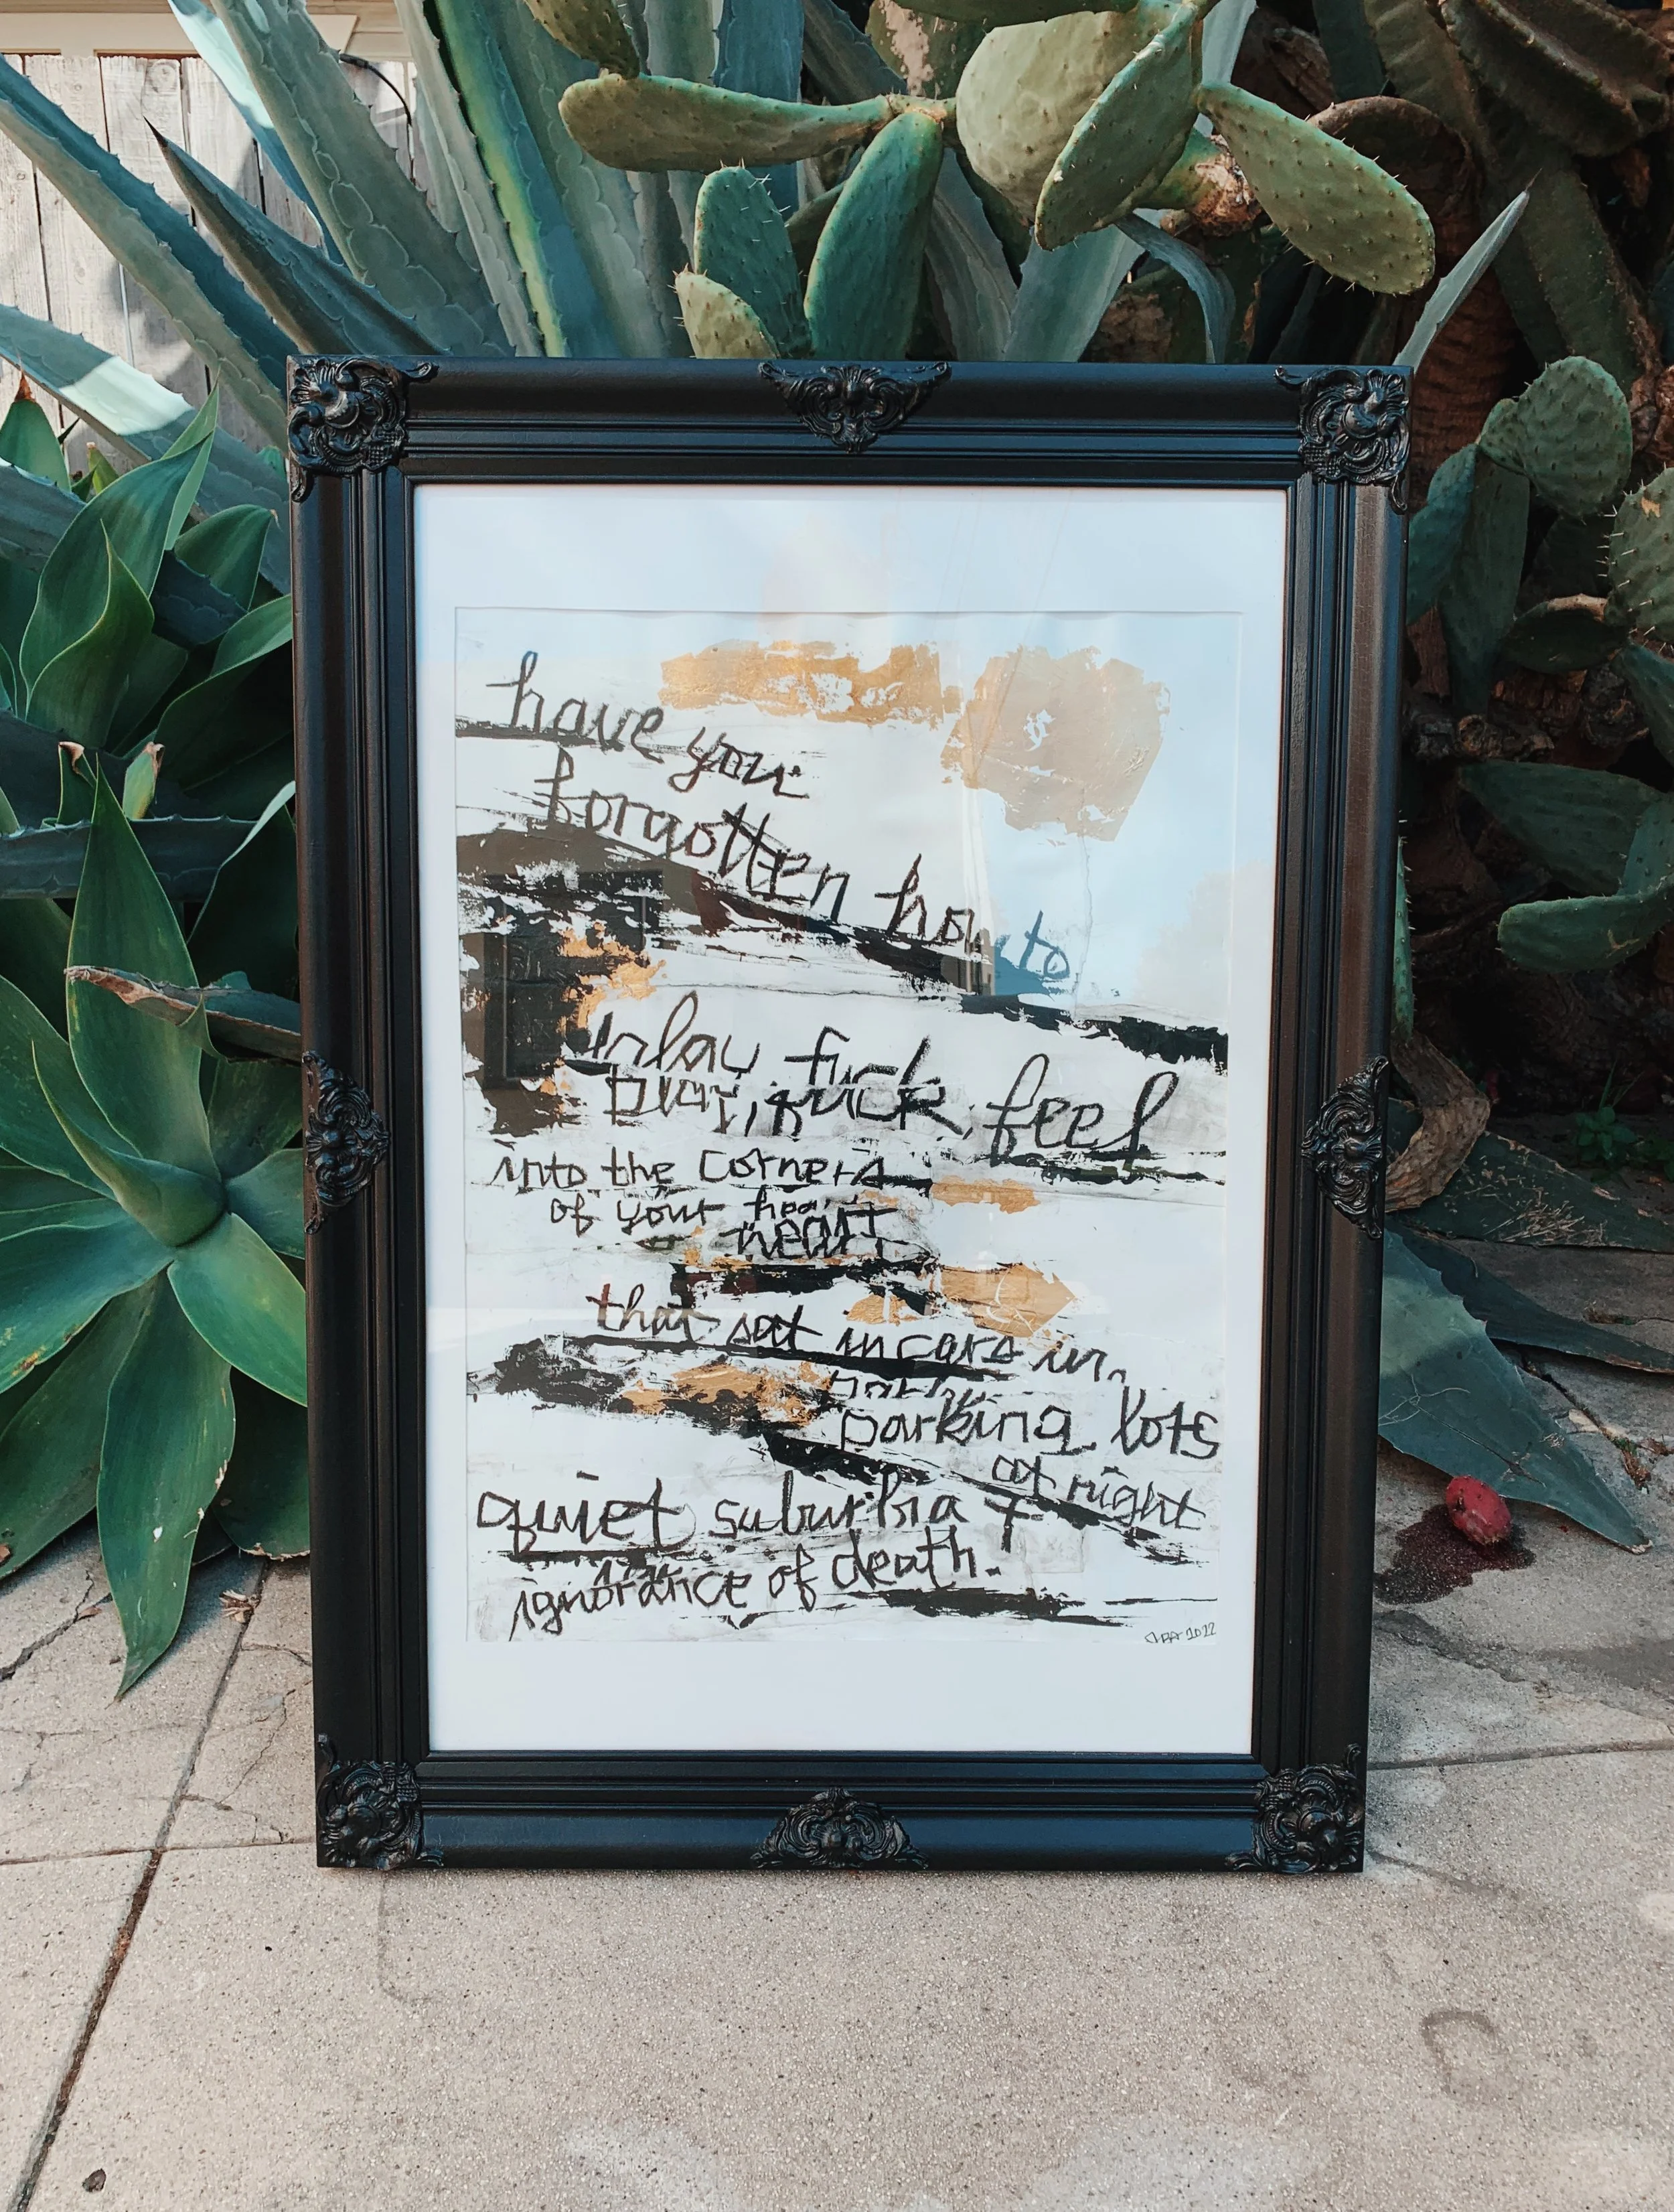 have you
forgotten how to
play, fuck, feel
play, fuck, feel
into the corners
of your heart
heart
that sat in cars in
parking
parking lots
at night
quiet suburbia +
ignorance of death.
2022